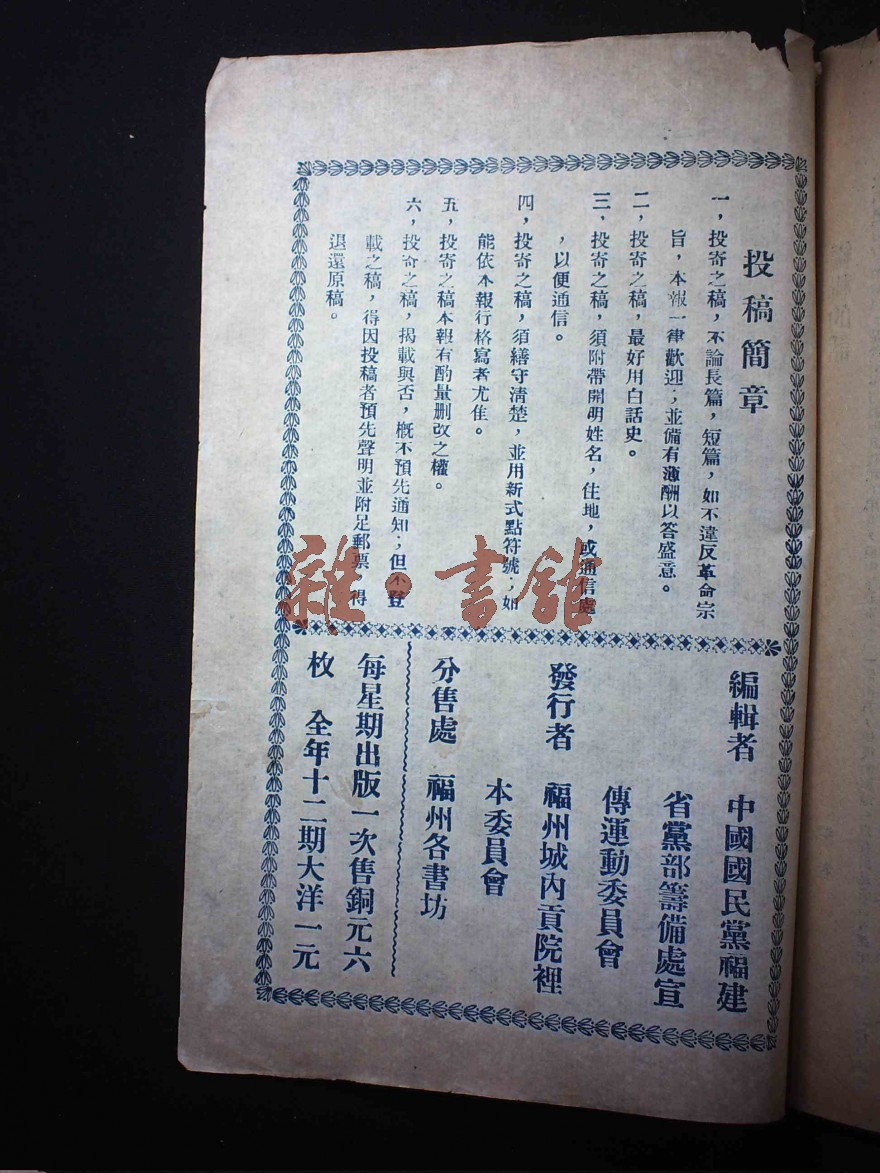 投稿簡章
一，投寄之稿，不論長篇，短篇，如不違反革命宗
旨，本報一律歡迎；並備有薄酬以答盛意。
二，投寄之稿，最好用白話史。
三，投寄之稿，須附帶開明姓名，住地，或通信處
，以便通信。
四，投寄之稿，須繕守清楚，並用新式點符號；如
能依本報行格寫者尤佳。
五，投寄之稿本報有酌量删改之權。
六，投寄之稿，揭載與否，概不預先通知；但不登
載之稿，得因投稿者預先聲明並附足郵票 得
退還原稿。
編輯者 中國國民黨福建
省黨部籌備處宣
傳運動委員會
發行者 福州城內貢院裡
本委員會
分售處 福州各書坊
每星期出版一次售銅元六
枚 全年十二期大洋一元
雜·書館